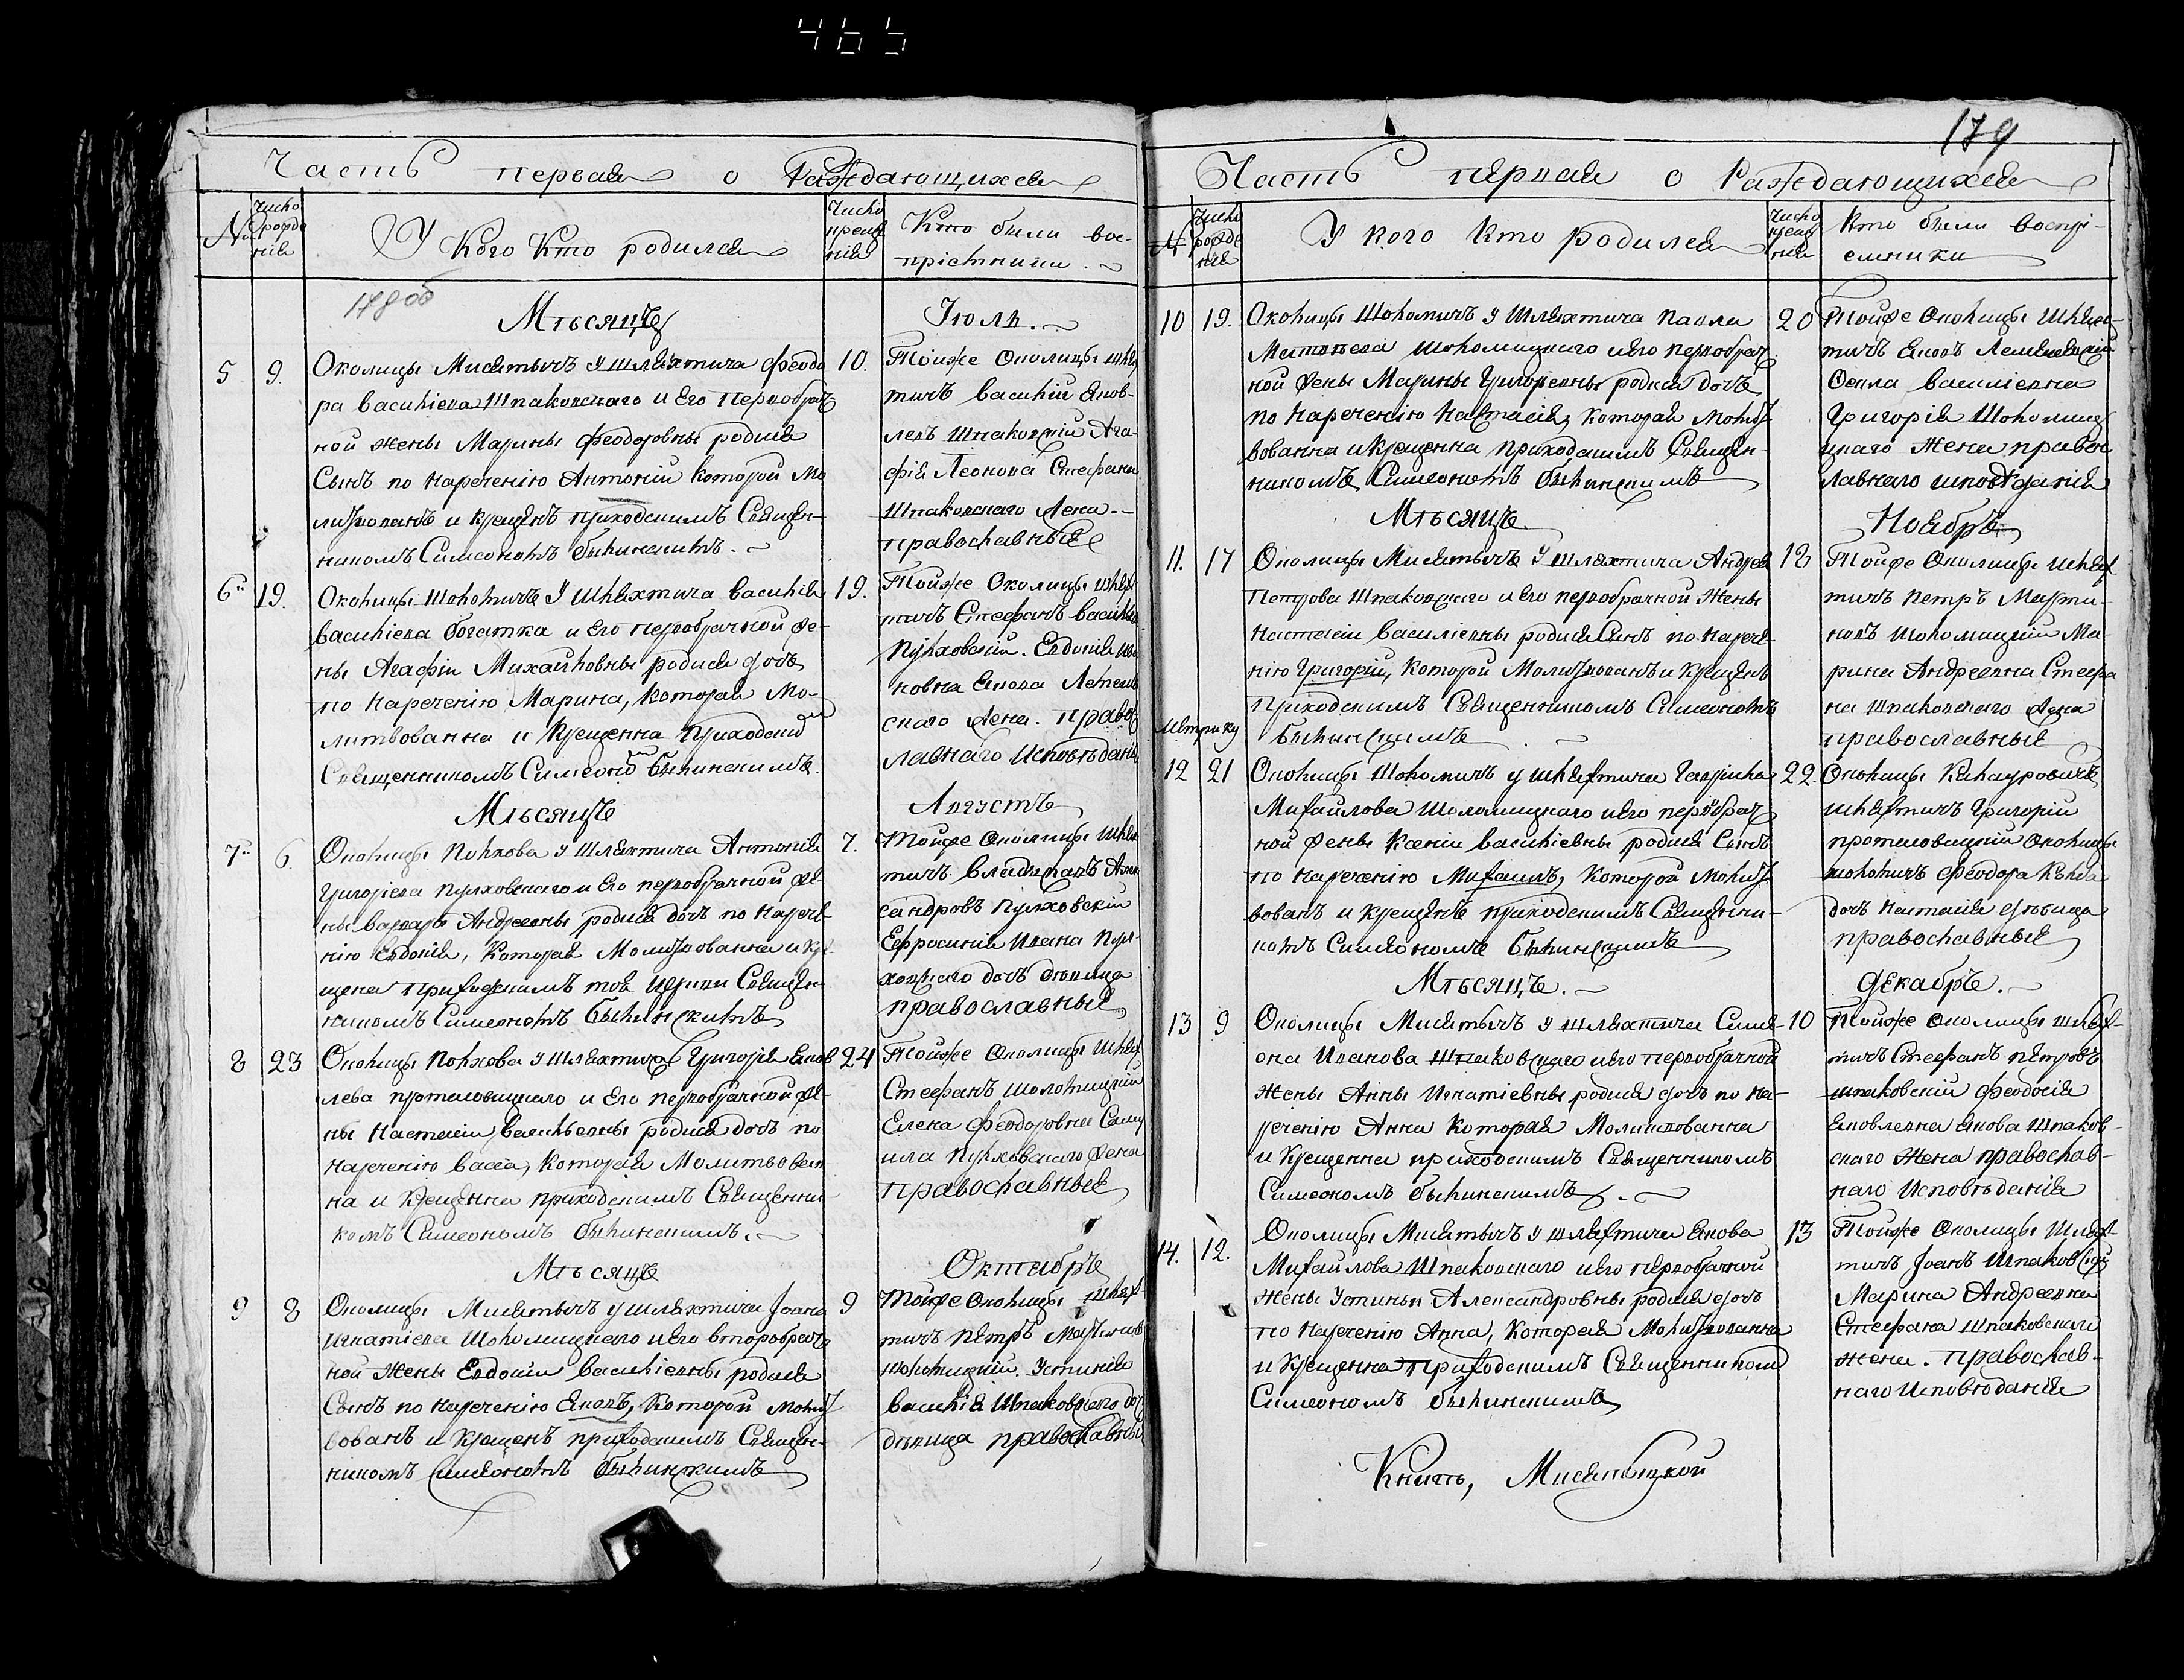 465
Часть первая о Раждающихся
№
Число рожде нія
У Кого Кто родился
Число крещенія
Кто были вос-
пріемники.
178 об
Мѣсяцъ
Іюль.
5 9.
Околицы Мисятычъ у шляхтича Феодо
ра Василіева Шпаковскаго и Его Первобрач
ной жены Марины Феодоровны родился
Сынъ по нареченію Антоній которой Мо
литвованъ и крещенъ приходскимъ Священ-
никомъ Симеономъ Былинскимъ.
10.
Тойже Околицы шлях
тичъ Василій Яков-
левъ Шпаковскій Ага-
фія Леонова Стефана
Шпаковскаго Жена
православные
6 19.
Околицы Шоломичъ У Шляхтича Василія
Василіева Богатка и Его первобрачной же-
ны Агафіи Михайловны родися дочь
по нареченію Марина, которая Мо-
литвованна и Крещенна Приходским
Священникомъ Симеоном Былинскимъ.
19.
Тойже Околицы шлях
тичъ Стефанъ Василіев
Пулховскій. Евдокія Ива
новна Якова
скаго Жена. Правос
лавнаго Исповѣдані
Мѣсяцъ
Августъ
7 6
Околицы Полхова у Шляхтича Антонія
Григоріева Пулховскаго и Его первобрачной же-
ны Варвары Андреевны родися дочь по нарече
нію Евдокія, Которая Молитвованна и Кре
щена Приходскимъ той церкви Священ-
никомъ Симеономъ Былинскимъ
7.
Тойже Околицы Шлях
тичъ Владиславъ Алек
сандровъ Пулховскій
Ефросинія Ивана Пул-
ховскаго дочь дѣвица
Православные
8 23
Околицы Полхова у Шляхтича Григорія Яков
лева Протасовицкаго и Его первобрачной же-
ны Настасіи Васильевны родися дочь по
нареченію Васса, которая Молитвован
на и Крещенна приходскимъ Священни
комъ Симеономъ Былинскимъ.
24
Тойже Околицы Шлях
Стефанъ Шоломицкій
Елена Феодоровна Саму
ила Пулховскаго Жена
Православные
Мѣсяцъ
Октябрь
9 8
Околицы Мисятычъ у шляхтича Іоана
Игнатіева Шоломицкаго и Его второбрач
ной Жены Евдокіи Василіевны родися
Сынъ по нареченію Яковъ, Которой молит
вованъ и крещенъ приходскимъ Священ-
никомъ Симеономъ Былинскимъ
9
Тойже Околицы Шлях
тичъ Петръ Мартинов
Шоломицкій. Устинія
Василія Шпаковскаго доч
дѣвица православны
179
Часть первая о Раждающихся
№
Число рожде нія
У кого Кто родился
Число крещ нія
Кто были воспрі-
емники
10 19.
Околицы Шоломичъ у Шляхтича Павла
Матвѣева Шоломицкаго и его первобрач
ной Жены Марины Григоревны родися дочь
по Нареченію Настасія, которая Молит
вованна и Крещенна Приходскимъ Священ-
никомъ Симеономъ Былинскимъ
20
Тойже Околицы Шлях-
тичъ Яковъ
Фекла Василіевна
Григорія Шоломиц
цкаго Жена правос
лавнаго исповѣданія
Мѣсяцъ
Ноябрь
11. 17
Околицы Мисятычъ у Шляхтича Андрея
Петрова Шпаковскаго и Его первобрачной Жены
Настасіи Василіевны родися Сынъ по нарече
нію Григорій, Которой Молитвованъ и Крещенъ
Приходскимъ Священникомъ Симеономъ
Былинскимъ
18
Тойже Околицы Шлях
тичъ Петръ Марти-
новъ Шоломицкій Ма
рина Андреевна Стефа
на Шпаковскаго Жена
православные
Метрику
12 21
Околицы Шоломичъ у шляхтича Гаврила
Михайлова Шоломицкаго и его первобрач
ной Жены Ксеніи Василіевны родися Сынъ
по Нареченію Михаилъ, Которой Молит
вованъ и Крещенъ приходскимъ Священни-
комъ Симеономъ Былинскимъ
22.
Околицы
Шляхтичъ Григорій
Протасовицкій Околицы
Шоломичъ Феодора
дочь Настасія дѣвица
православные
Мѣсяцъ.
Декабрь.
13 9
Околицы Мисятычъ у шляхтича Симе-
она Иванова Шпаковскаго и его первобрачной
Жены Анны Игнатіевны родися дочь по на-
реченію Анна Которая Молитвованна
и Крещенна приходскимъ Священникомъ
Симеономъ Былинскимъ.
10
Тойже Околицы шлях-
тичъ Стефанъ Петровъ
Шпаковскій Феодосія
Яковлевна Якова Шпаков-
скаго Жена православ-
наго Исповѣданія
14. 12.
Околицы Мисятычъ у шляхтича Якова
Михайлова Шпаковскаго и его первобрачной
Жены Устиньи Александровны родися дочь
по Нареченію Анна, Которая Молитвованна
и Крещенна Приходскимъ Священником
Симеономъ Былинскимъ
13
Тойже Околицы Шлях-
тичъ Іоанъ Шпаковскій
Марина Андреевна
Стефана Шпаковскаго
Жена. Православ-
наго Исповѣданія
Мисятыцкой